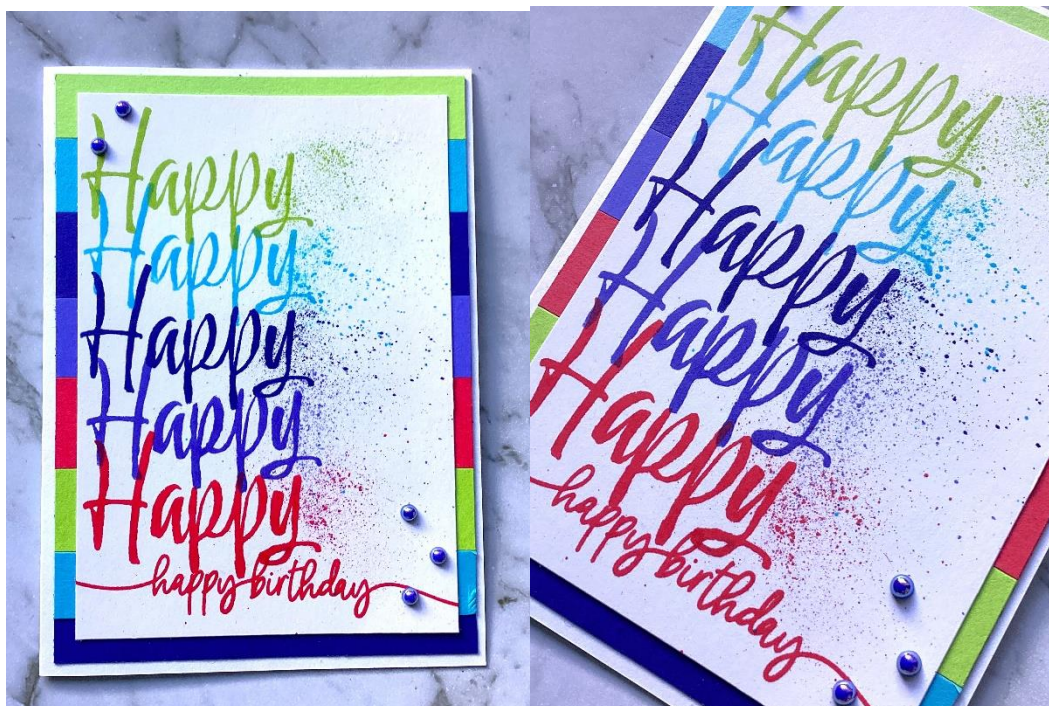 Happy
Happy
Happy
Happy
Happy
happy birthday
Happy
Happy
Happy
Happy
Happy
happy birthday